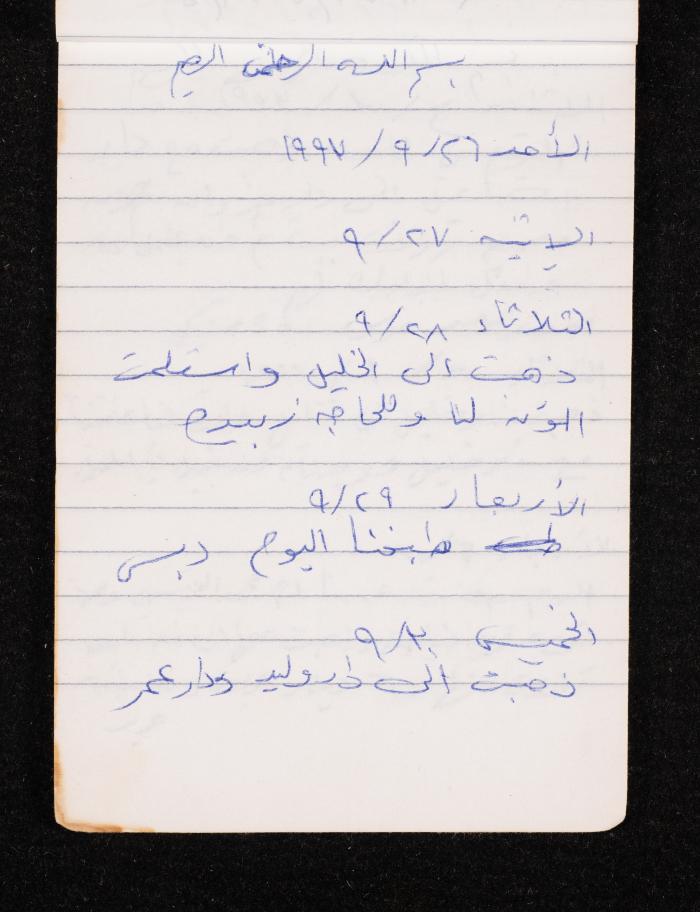 بسم الله الرحمن الرحيم
الأحد ٢٦/٩/١٩٩٧
الاثنين ٢٧/٩
الثلاثاء ٢٨/٩
ذهبت الى الخليل واستلمت
المؤن لنا وللحاجه زبيده
الأربعاء ٢٩/٩
طبخنا اليوم دبس
الخميس ٣٠/٩
ذهبت الى دار وليد ودار عمر